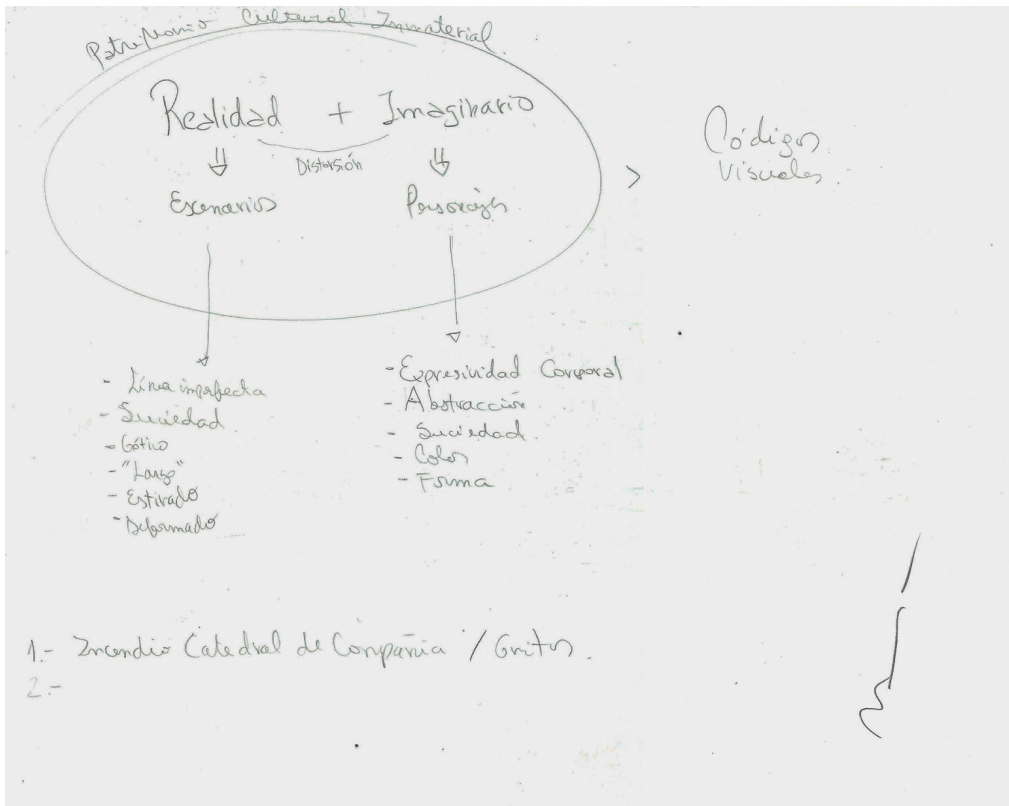 Patrimonio Cultural Inmaterial
Realidad + Imaginario
Distorsión
Escenarios
Personajes
>
Códigos
Visuales
- Línea imperfecta
- Suciedad
- Gótico
- "Largo"
- Estirado
- Deformado
- Expresividad Corporal
- Abstracción
- Suciedad
- Color
- Forma
1.- Incendio Catedral de Compañia / Gritos.
2.-